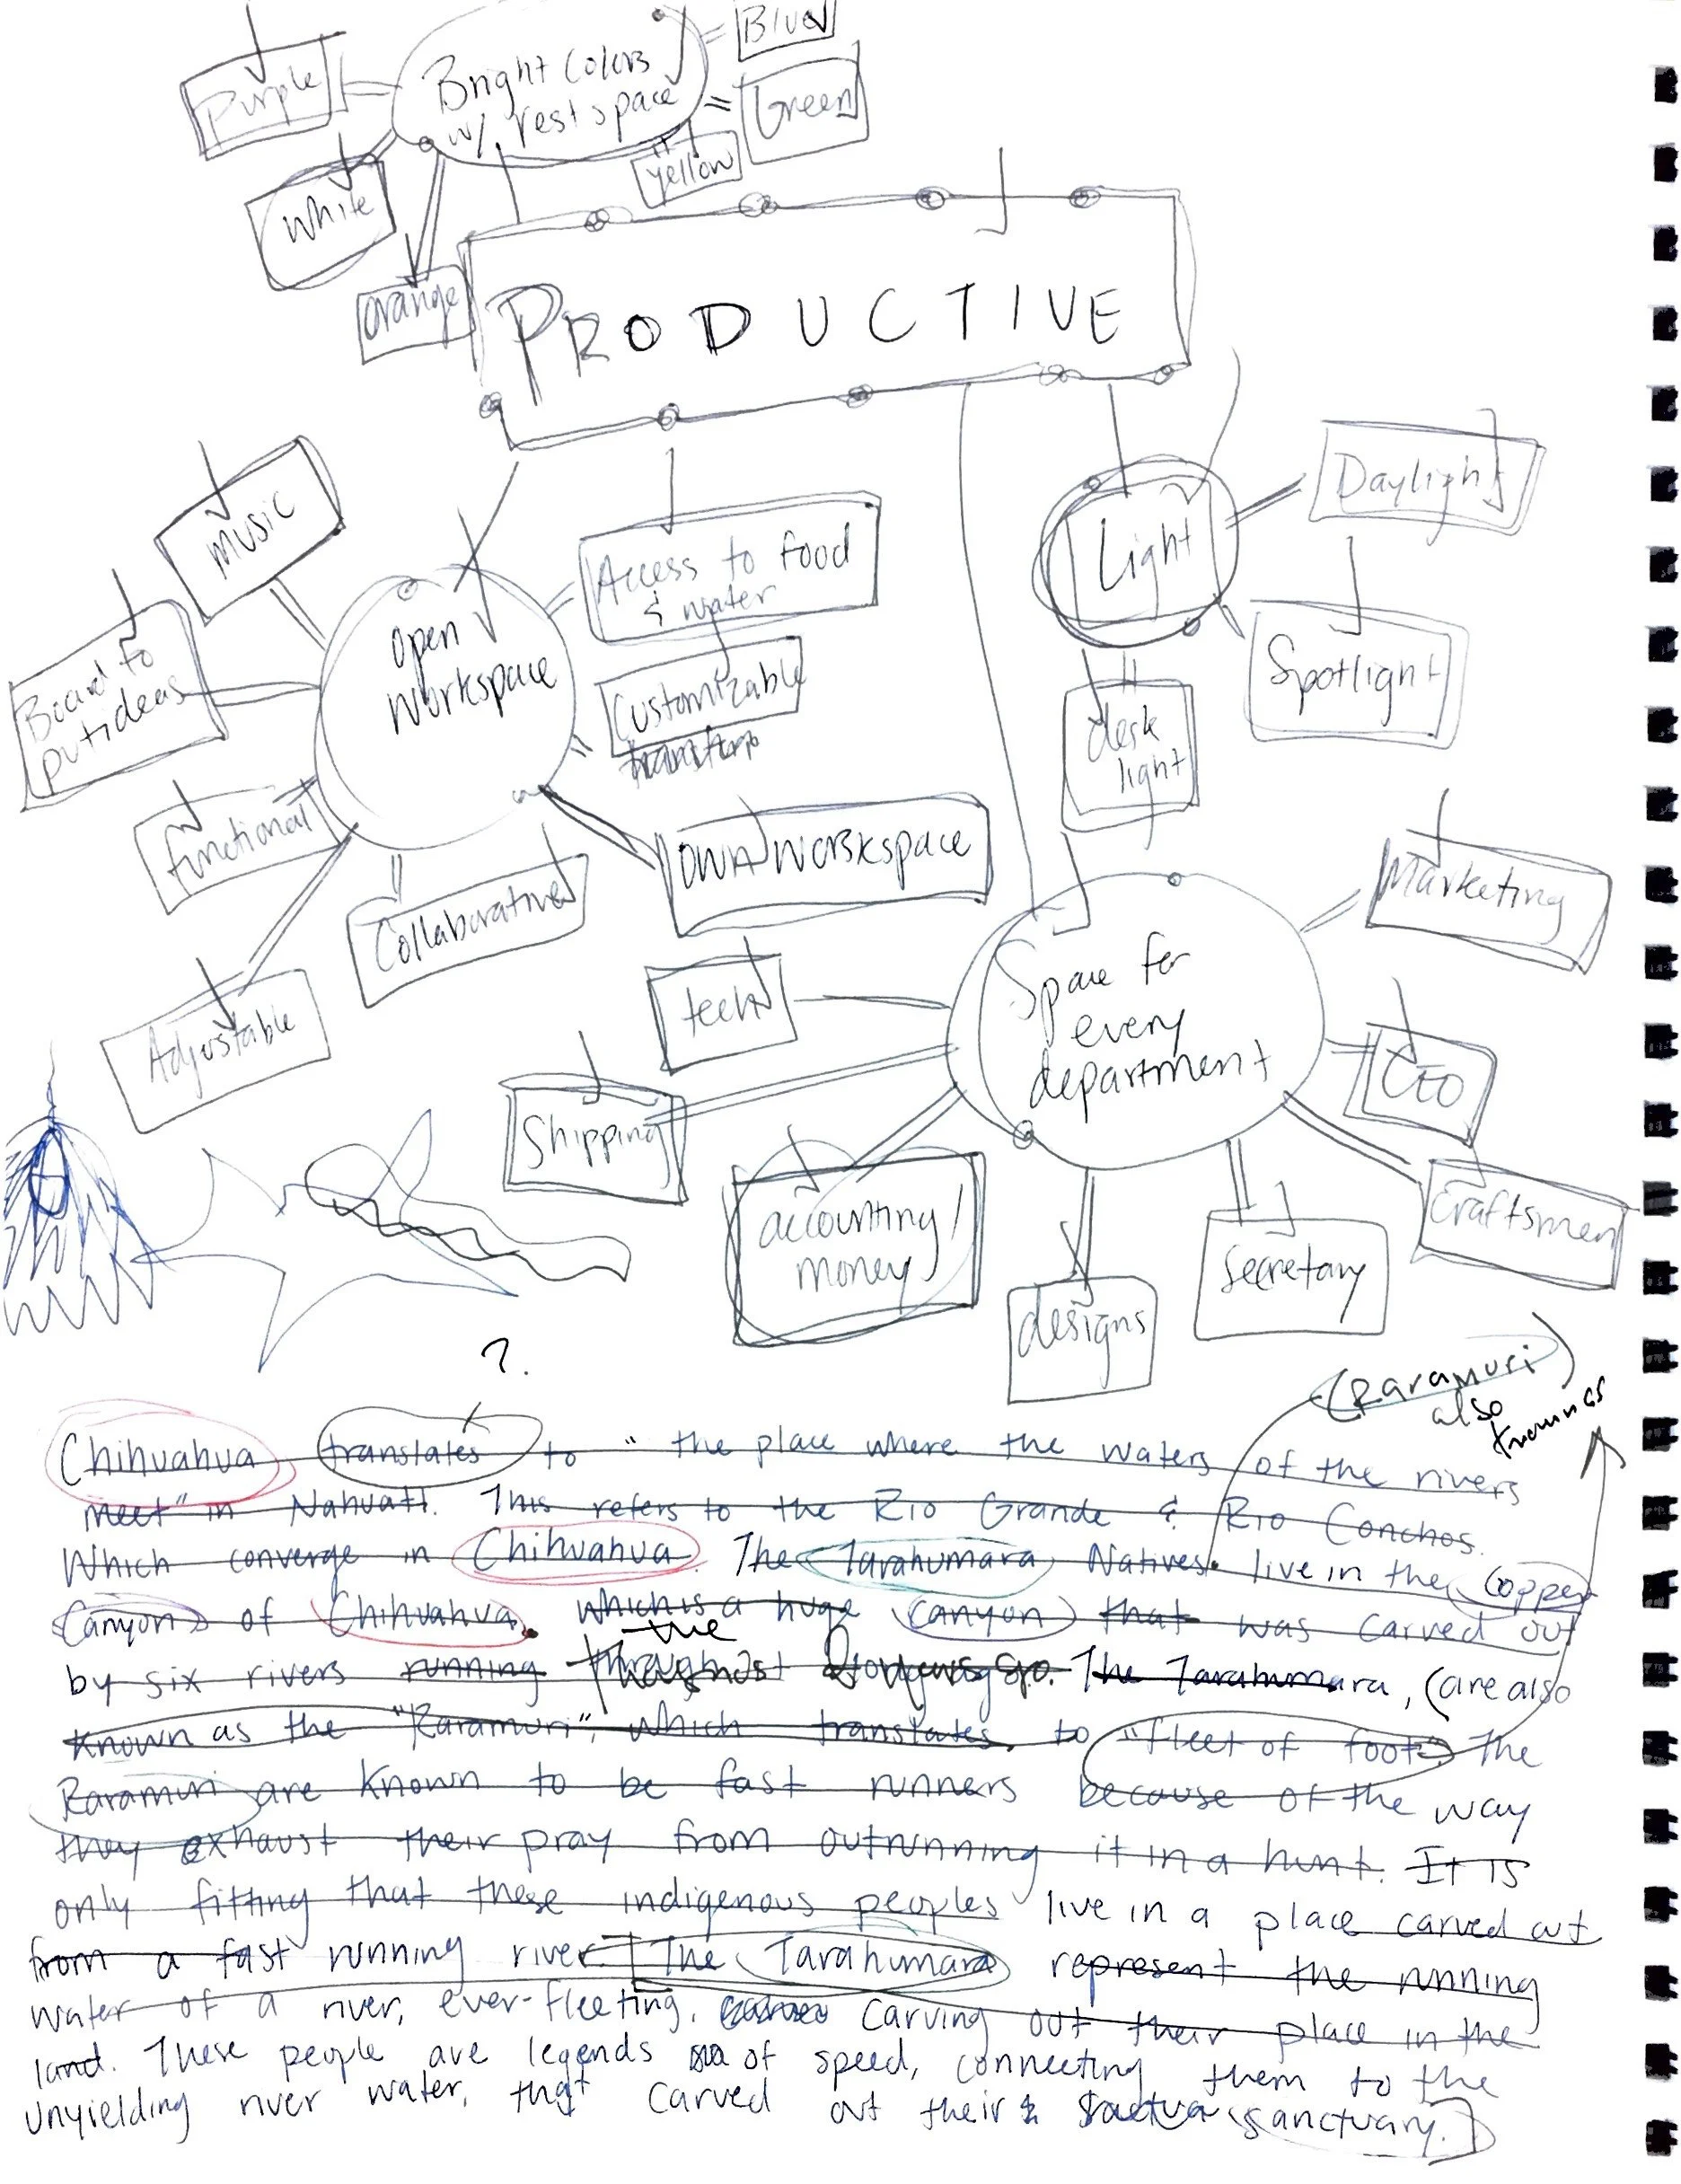 Blue
Purple
Bright Colors
w/ rest space
Green
yellow
White
orange
PRODUCTIVE
Music
Daylight
Access to food
& water
Light
Open
Workspace
Board to
put ideas
Customizable
Spotlight
desk
light
functional
OWN WORKSPACE
Marketing
Collaborative
tech
Space for
every
department
Adjustable
CEO
Shipping
Craftsmen
accounting/
money
Secretary
designs
?
(Raramuri)
also
Chihuahua translates to "the place where the waters of the rivers
meet" in Nahuatl. This refers to the Rio Grande & Rio Conchos.
Which converge in Chihuahua. The Tarahumara Natives live in the Copper
Canyons of Chihuahua. which is a huge canyon that was carved out
the
by six rivers running The Tarahumara, (are also
known as the "Raramuri", which translates to "fleet of foot". The
Raramuri are known to be fast runners because of the way
they exhaust their pray from outrunning it in a hunt. It is
only fitting that these indigenous peoples live in a place carved out
from a fast running river. [The Tarahumara represent the running
water of a river, ever-fleeting, carving out their place in the
land. These people are legends of speed, connecting them to the
unyielding river water, that carved out their sanctuary.]